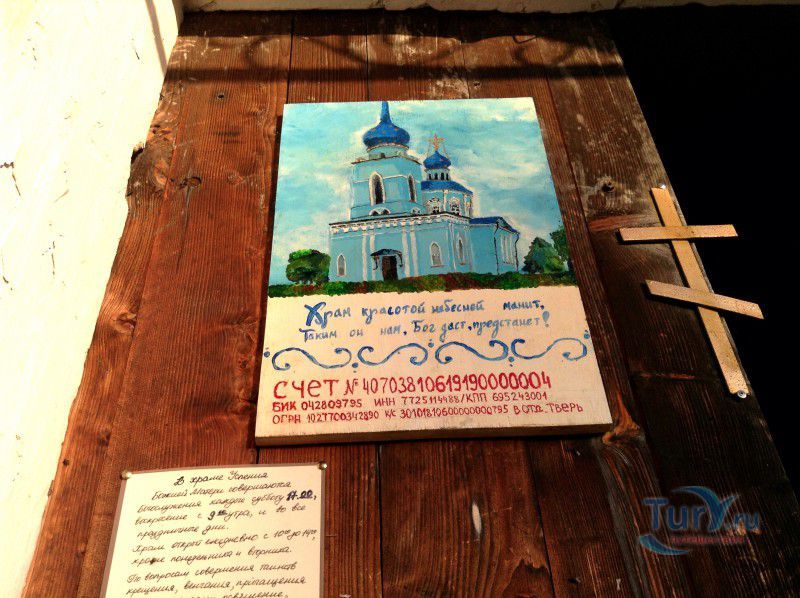 Храм красотой небесной манит,
Таким он нам, Бог даст, предстанет!
Счет № 40703810619190000004
БИК 042809795 ИНН 7725114488/КПП 695243001
ОГРН 1027700342890 К/С 30101810600000000795 В ОТД. ТВЕРЬ
В храме Успения
Божией Матери совершаются
Богослужения каждую субботу 17.00,
воскресение с 9 00 утра, и во все
праздничные дни.
Храм открыт ежедневно с 10 00 до 14 00,
кроме понедельника и вторника.
По вопросам совершения таинств
крещения, венчания, причащения
Tury.ru